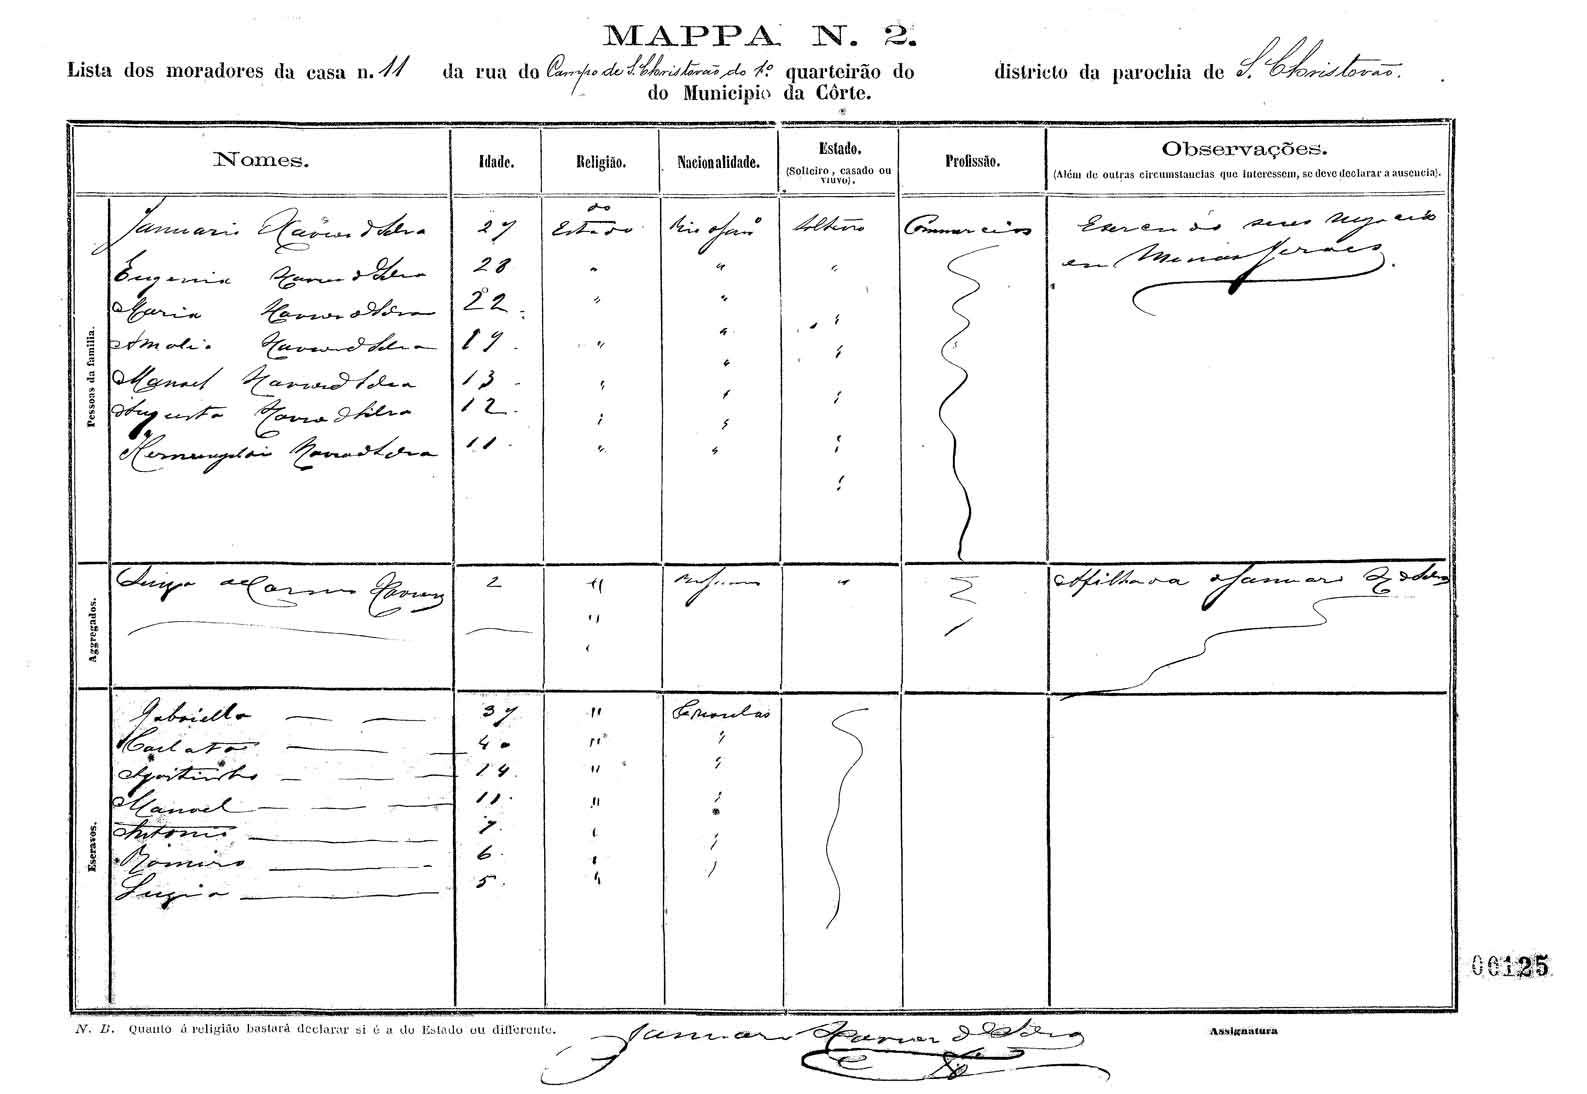 MAPPA N. 2.
Lista dos moradores da casa n. 11 da rua do Campo de S. Christovão do 1.º quarteirão do districto da parochia de S. Christovão.
do Municipio da Côrte.
Nomes. Idade. Religião. Nacionalidade. Estado. (Solteiro, casado ou viuvo). Profissão. Observações. (Além de outras circumstancias que interessem, se deve declarar a ausencia).
Pessoas da familia.
Januario Xavier d Silva 27 do Estado Rio Janº Solteiro Commercios Exercendo seus negocios
em Minas Geraes.
Eugenia Xavier d Silva 28 " " "
Maria Xavier d Silva 22 " " "
Amalia Xavier d Silva 19 " " "
Manoel Xavier d Silva 13 " " "
Augusta Xavier d Silva 12 " " "
Xavier d Silva 11 " " "
Aggregados.
Xavier 2 " " Afilhada d Januario X. d Silva
Escravos.
Gabriella 37 " Crioulas
40 " "
Agostinho 14 " "
Manoel 11 " "
Antonio 7 " "
Romiro 6 " "
Luzia 5 " "
00125
N. B. Quanto á religião bastará declarar si é a do Estado ou differente.
Januario Xavier d Silva
Assignatura